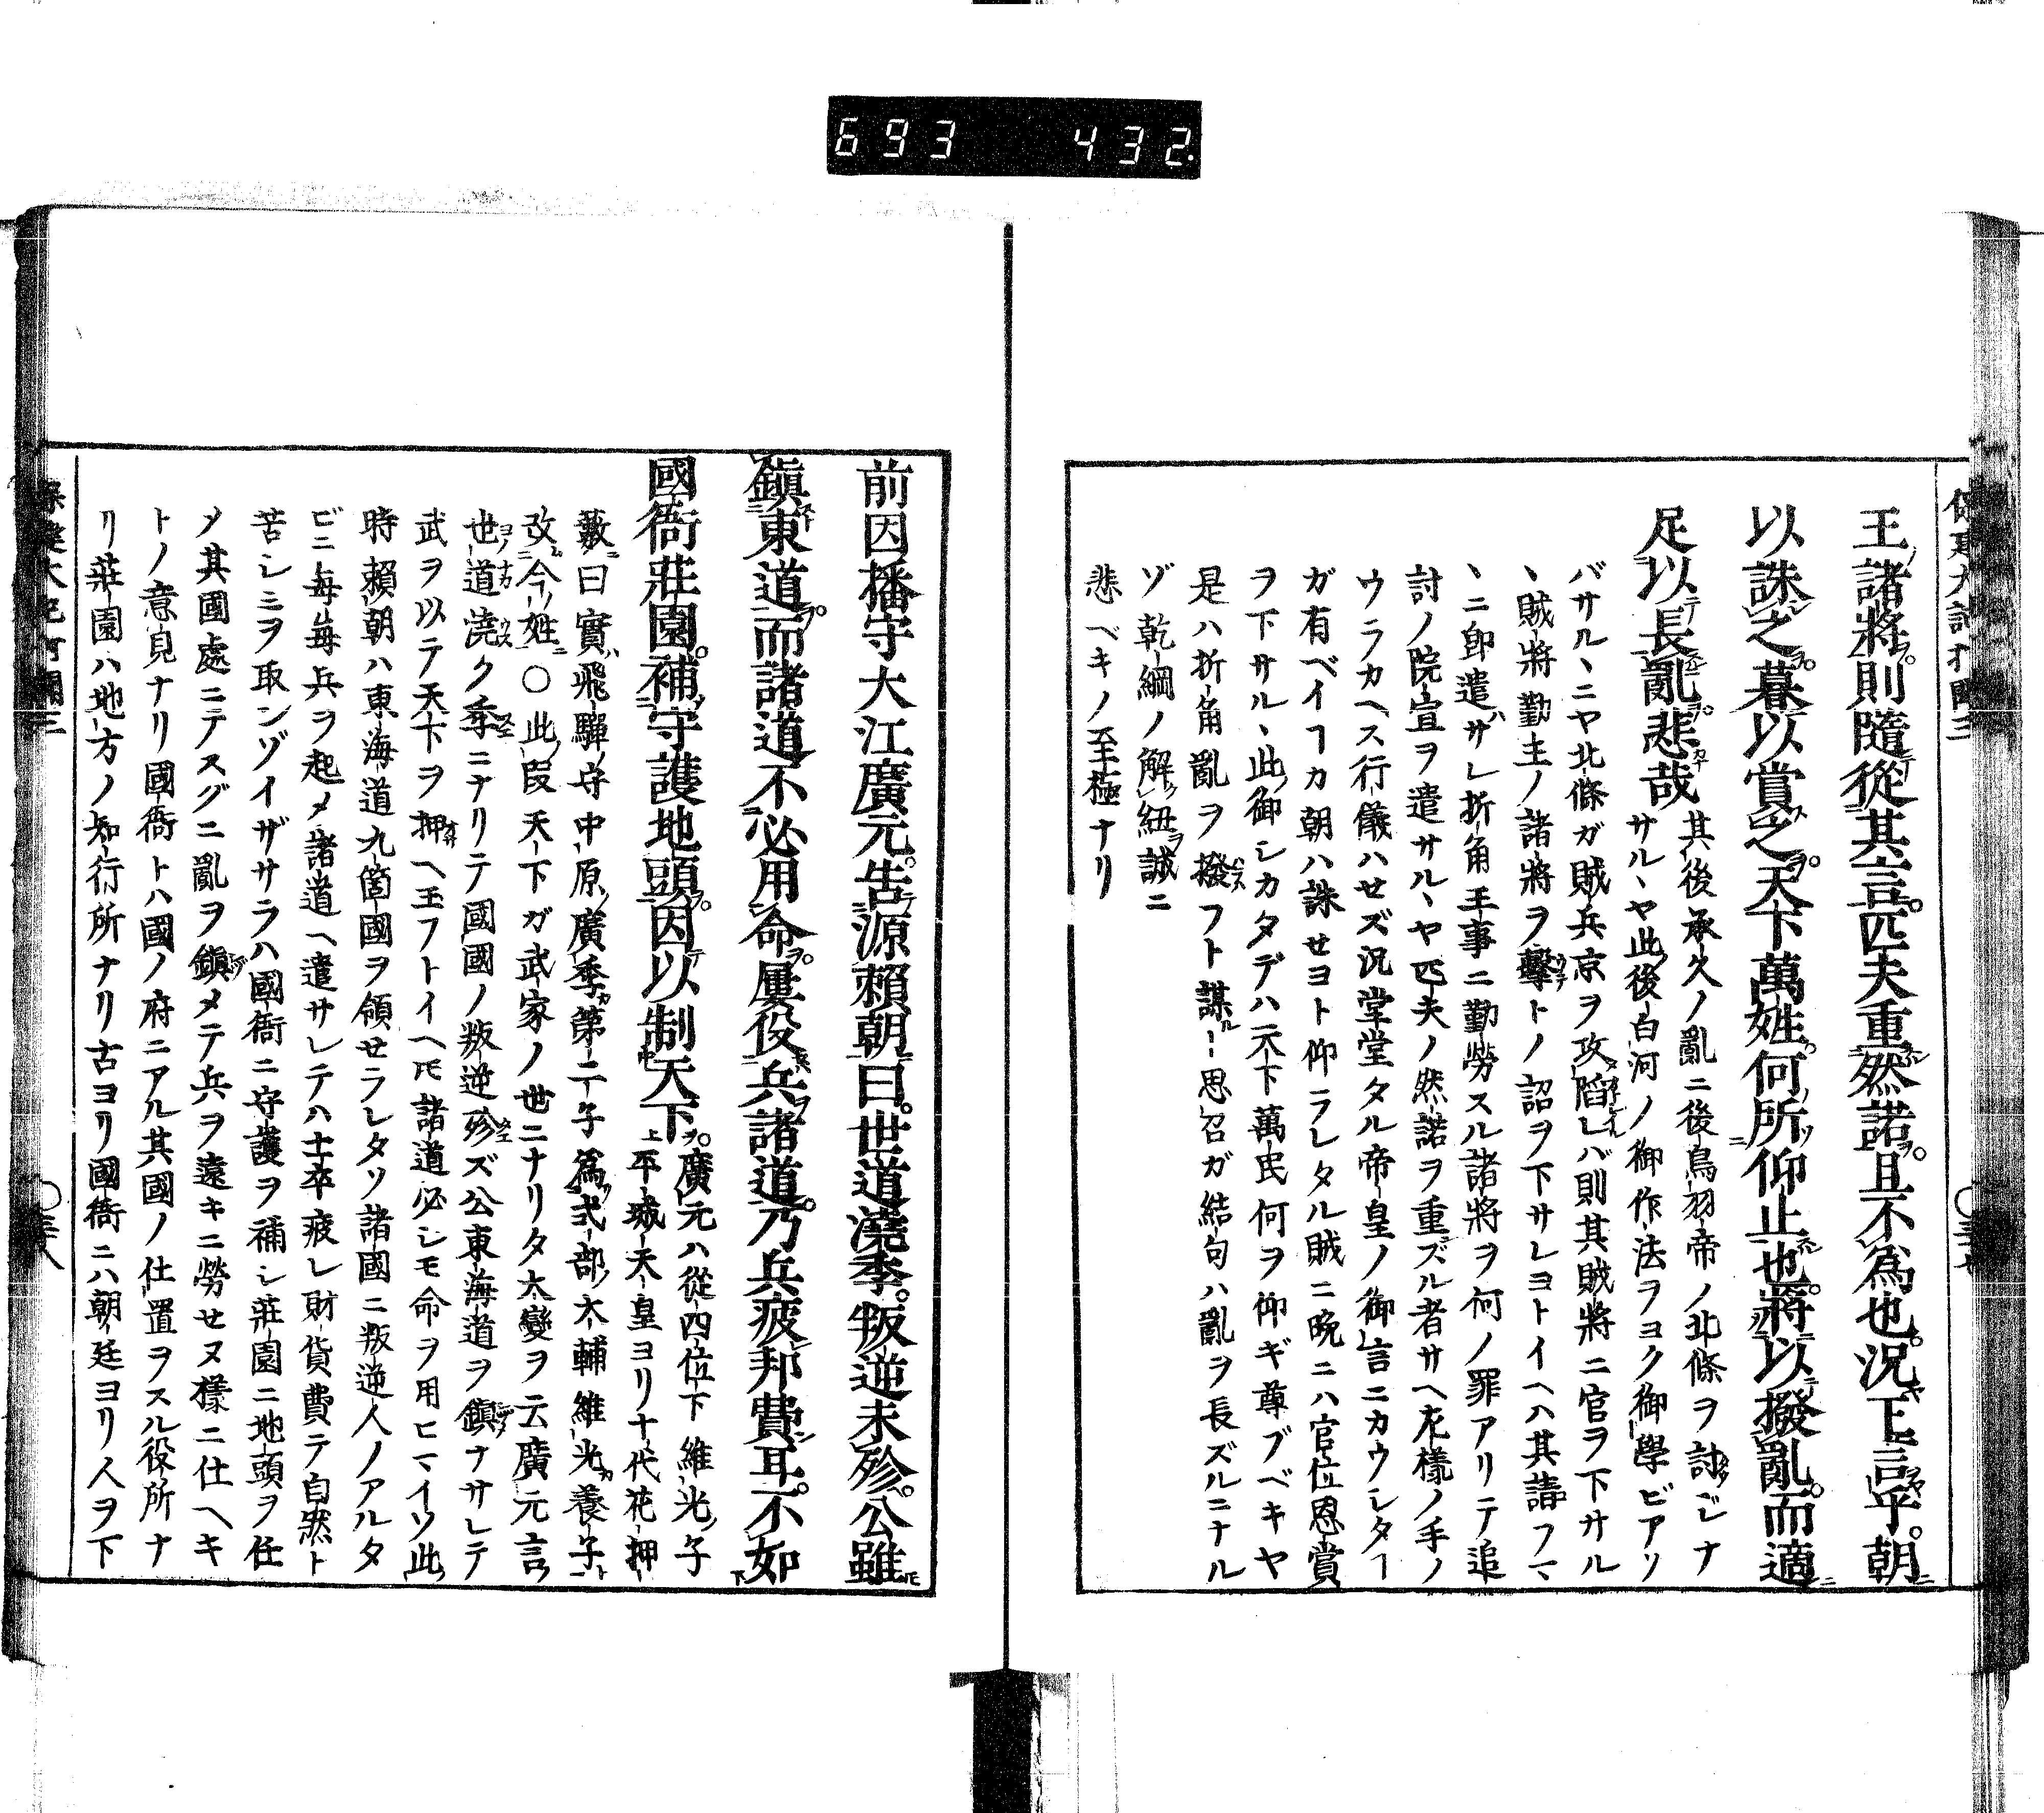 693 432.
王諸將則隨從其言匹夫重然諾且不爲也況王言乎朝
以誅之暮以賞之天下萬姓何所仰止也將以撥亂而適
足以長亂悲哉
其後承久ノ亂ニ後鳥羽帝ノ北條ヲ討ジナ
サル丶ヤ此後白河ノ御作法ヲヨク御學ビアソ
バサル丶ニヤ北條ガ賊兵京ヲ攻陷レバ則其賊將ニ官ヲ下サル
丶賊將勤主ノ諸將ヲ擊トノ詔ヲ下サレヨトイヘハ其請フマ
丶ニ卽遣サレ折角王事ニ勤勞スル諸將ヲ何ノ罪アリテ追
討ノ院宣ヲ遣サル丶ヤ匹夫ノ然諾ヲ重ズル者サヘ左樣ノ手ノ
ウラカヘス行儀ハセズ況堂堂タル帝皇ノ御言ニカウシタヿ
ガ有ベイヿカ朝ハ誅セヨト仰ラレタル賊ニ晩ニハ官位恩賞
ヲ下サル丶此御シカタデハ天下萬民何ヲ仰ギ尊ブベキヤ
是ハ折角亂ヲ撥フト謀ル思召ガ結句ハ亂ヲ長ズルニナル
ゾ乾綱ノ解紐誠ニ
悲ベキノ至極ナリ
前因播守大江廣元告源賴朝曰世道澆季叛逆未殄公雖
鎭東道而諸道不必用命屢役兵諸道乃兵疲邦費耳不如
國衙莊園補守護地頭因以制天下
廣元ハ從四位下維光ノ子
平城天皇ヨリ十代花押
藪ニ曰實ハ飛驒ノ守中原ノ廣季カ第二子爲式部ノ大輔維光カ養子ト
改今ノ姓ニ○此段天下ガ武家ノ世ニナリタ大變ヲ云廣元言ハ
世ノ道澆ク季ニナリテ國國ノ叛逆殄ズ公東海道ヲ鎭ナサレテ
武ヲ以テ天下ヲ押ヘ玉フトイヘ𪜈諸道必シモ命ヲ用ヒマイソ此
時賴朝ハ東海道九箇國ヲ領セラレタソ諸國ニ叛逆人ノアルタ
ビニ每每兵ヲ起メ諸道ヘ遣サレテハ士卒疲レ財貨費テ自然ト
苦シミヲ取ンゾイザサラハ國衙ニ守護ヲ補シ莊園ニ地頭ヲ任
メ其國處ニテスグニ亂ヲ鎭メテ兵ヲ遠キニ勞セヌ樣ニ仕ヘキ
トノ意見ナリ國衙トハ國ノ府ニアル其國ノ仕置ヲスル役所ナ
リ莊園ハ地方ノ知行所ナリ古ヨリ國衙ニハ朝廷ヨリ人ヲ下